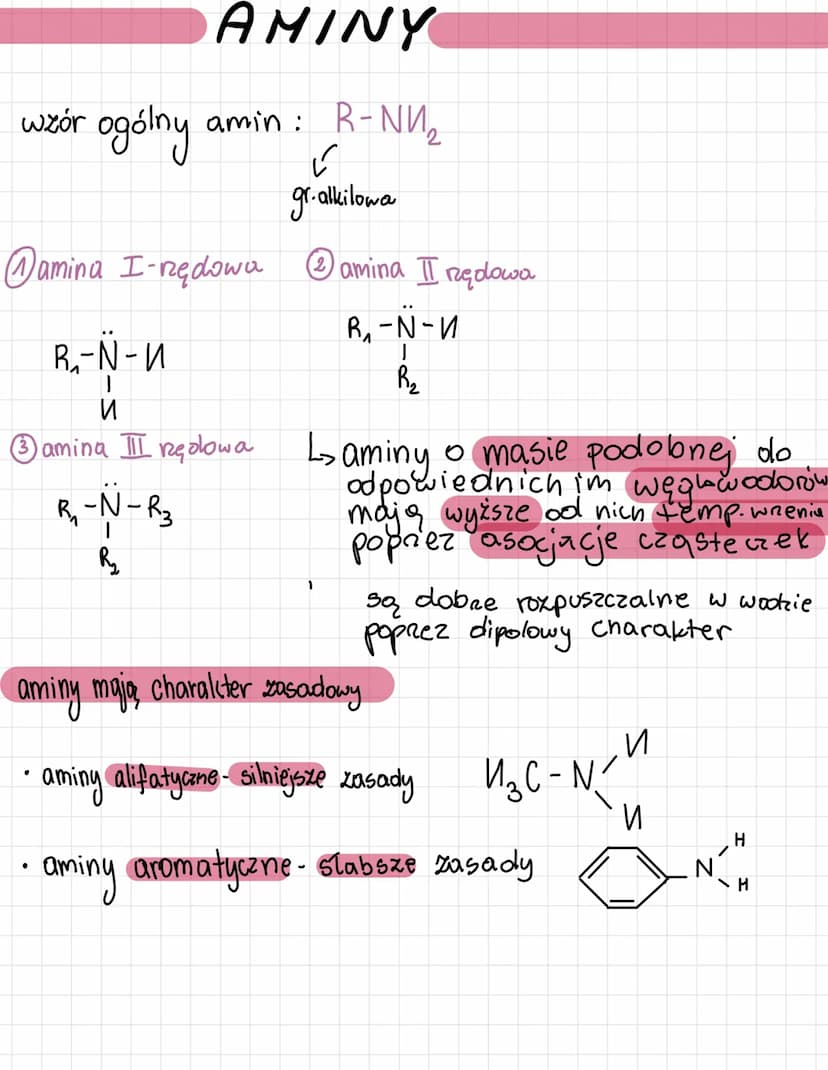 AMINY
wzór ogólny amin : R-NH₂
gr. alkilowa
① amina I-rzędowa
R₁-N̈-H
H
② amina II rzędowa
R₁-N̈-H
R₂
③ amina III rzędowa
R₁-N̈-R₃
R₂
↳ aminy o masie podobnej do
odpowiednich im węglowodorów
mają wyższe od nich temp. wrzenia
poprzez asocjacje cząsteczek
są dobrze rozpuszczalne w wodzie
poprzez dipolowy charakter
aminy mają charakter zasadowy
• aminy alifatyczne - silniejsze zasady
H
H₃C-N
H
• aminy aromatyczne - słabsze zasady
H
N
H